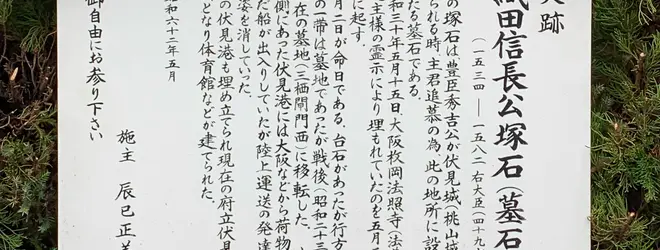 史跡
織田信長公塚石(墓石
(一五三四 ― 一五八二右大臣(四十九
の塚石は豊臣秀吉公が伏見城(桃山
られる時主君追慕の為、此の地所に設
たる墓石である。
和三十年五月十五日、大阪枚岡法照寺(法
主様の霊示により埋もれていたのを五月
に起す。
月二日が命日である、台石があったが行方
の一帯は墓地であったが戦後(昭和二十三
在の墓地(三栖閘門西)に移転した。
側にあった伏見港には大阪などから荷物
だ船が出入りしていたが陸上運送の発達
姿を消していった。
の伏見港も埋め立てられ現在の府立伏見
となり体育館などが建てられた。
和六十二年五月
御自由にお参り下さい
施主 辰巳正